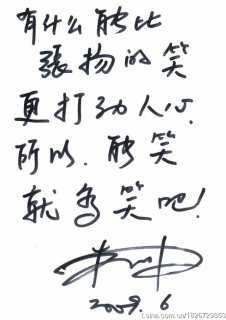 有什么能比
張扬的笑
更打动人心.
所以.能笑
就多笑吧!
2009.6
t.sina.com.cn/1825729353